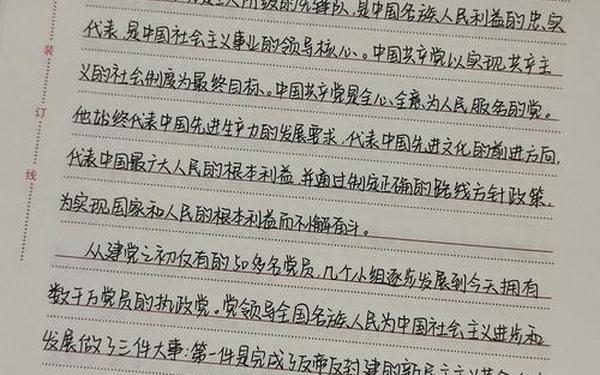 人阶级的先锋队,是中国各族人民利益的忠实
代表,是中国社会主义事业的领导核心。中国共产党以实现共产主
义的社会制度为最终目标。中国共产党是全心全意为人民服务的党。
他始终代表中国先进生产力的发展要求,代表中国先进文化的前进方向,
代表中国最广大人民的根本利益,并通过制定正确的路线方针政策,
为实现国家和人民的根本利益而不懈奋斗。
从建党之初仅有的50多名党员,几个小组逐步发展到今天拥有
数千万党员的执政党。党领导全国各族人民为中国社会主义进步和
发展做了三件大事:第一件是完成了反帝反封建的新民主主义革命
装
订
线